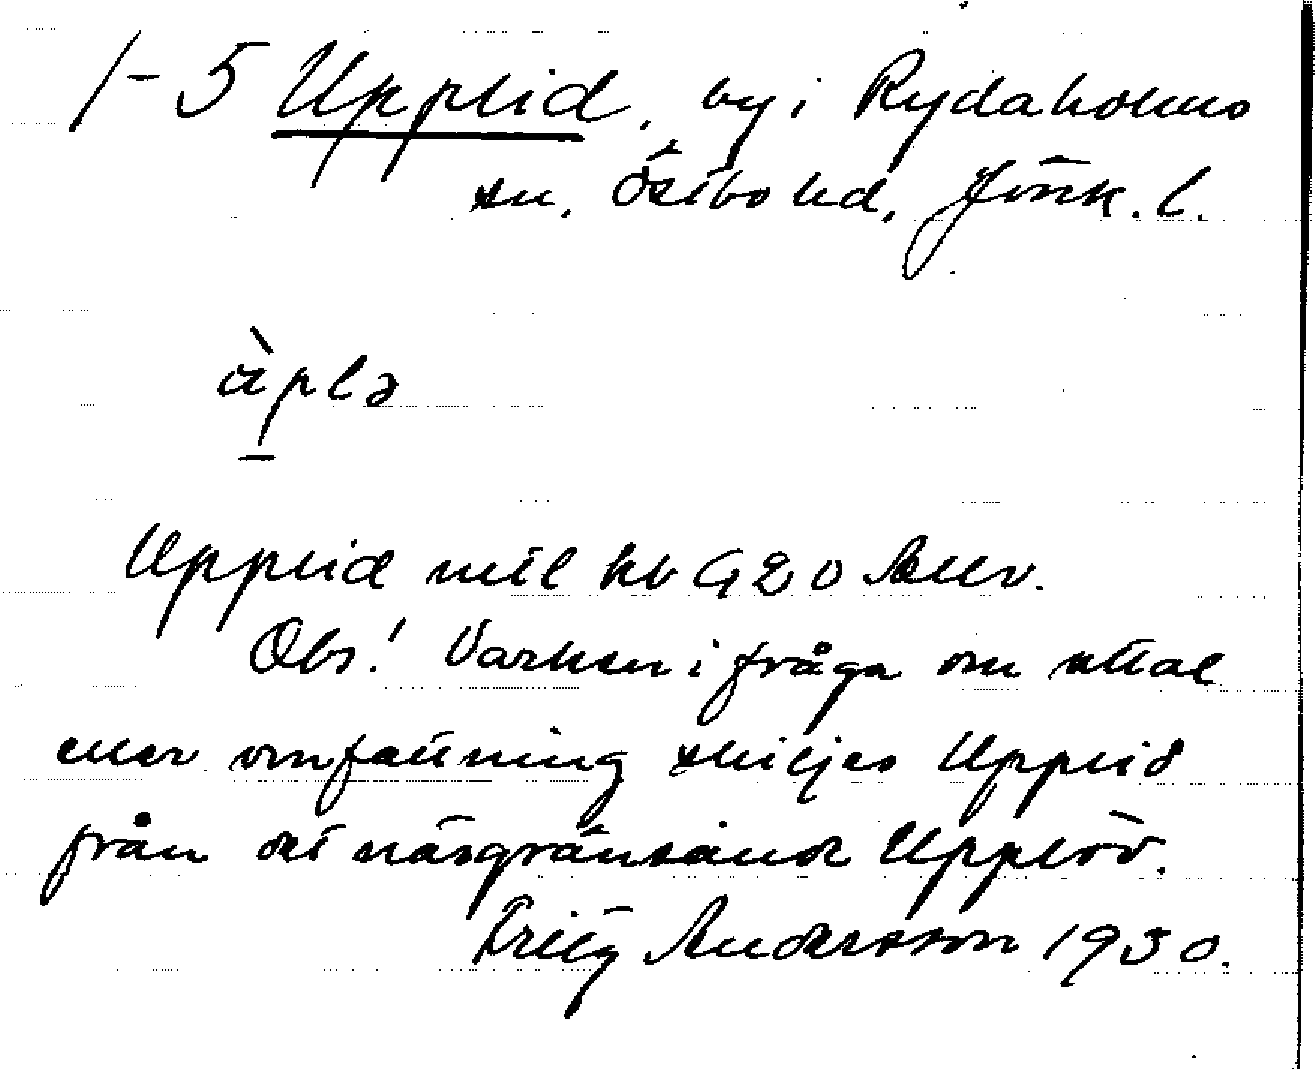 1-5 Upplid, by i Rydaholms
sn. Östbo hd, Jönk. l.
àplə
Upplid mtl kb G20 Allv.
Obs! Varken i fråga om uttal
eller omfattning skiljes Upplid
från det näsgränsande Upplöv.
Fritz Andersson 1930.